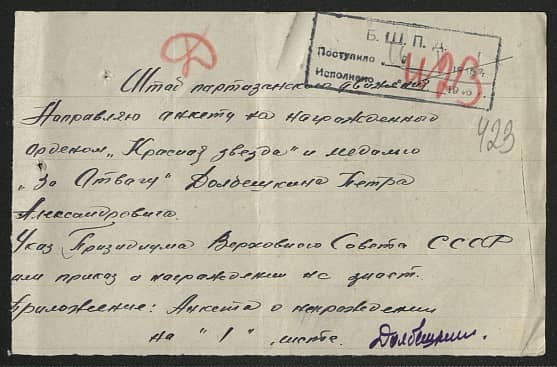 Д
Б. Ш. П. Д.
Поступило
Исполнено
423
Штаб партизанского движения
Направляю анкету на награжденного
орденом „Красная звезда" и медалью
„За Отвагу" Долбешкина Петра
Александровича.
Указ Призидиума Верховного Совета СССР
или приказ о награждении не знает.
Приложение: Анкета о награждении
на "1" листе. Долбешкин.
423